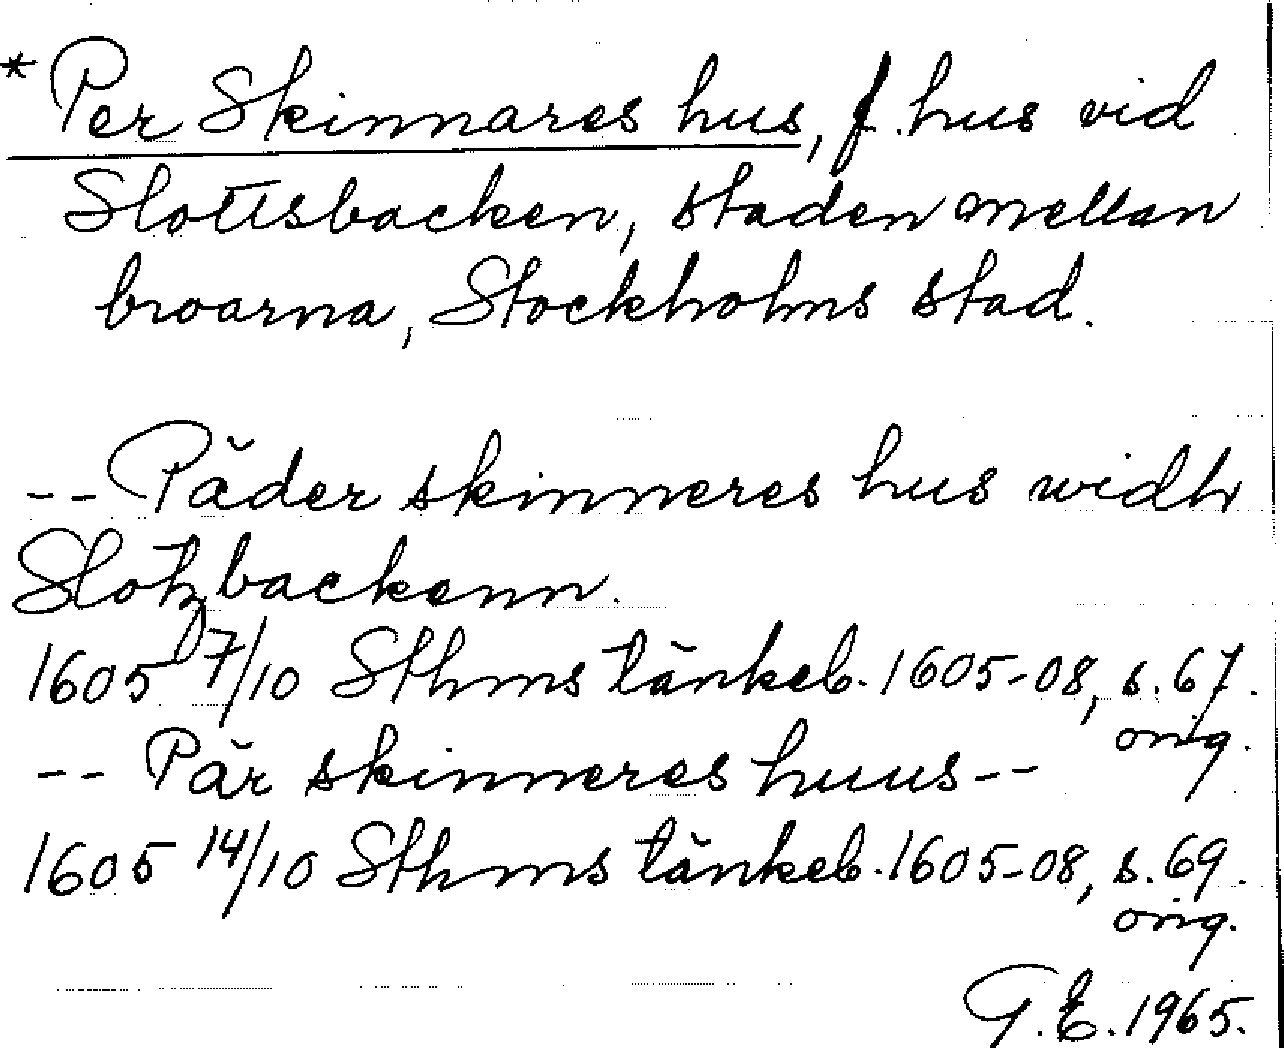 * Per Skinnares hus, f. hus vid
Slottsbacken, staden mellan
broarna, Stockholms stad.
-- Päder skinneres hus widh
Slotzbackenn.
1605 7/10 Sthms tänkeb. 1605-08, s. 67.
orig.
-- Pär skinneres huus --
1605 14/10 Sthms tänkeb. 1605-08, s. 69.
orig.
G.E. 1965.